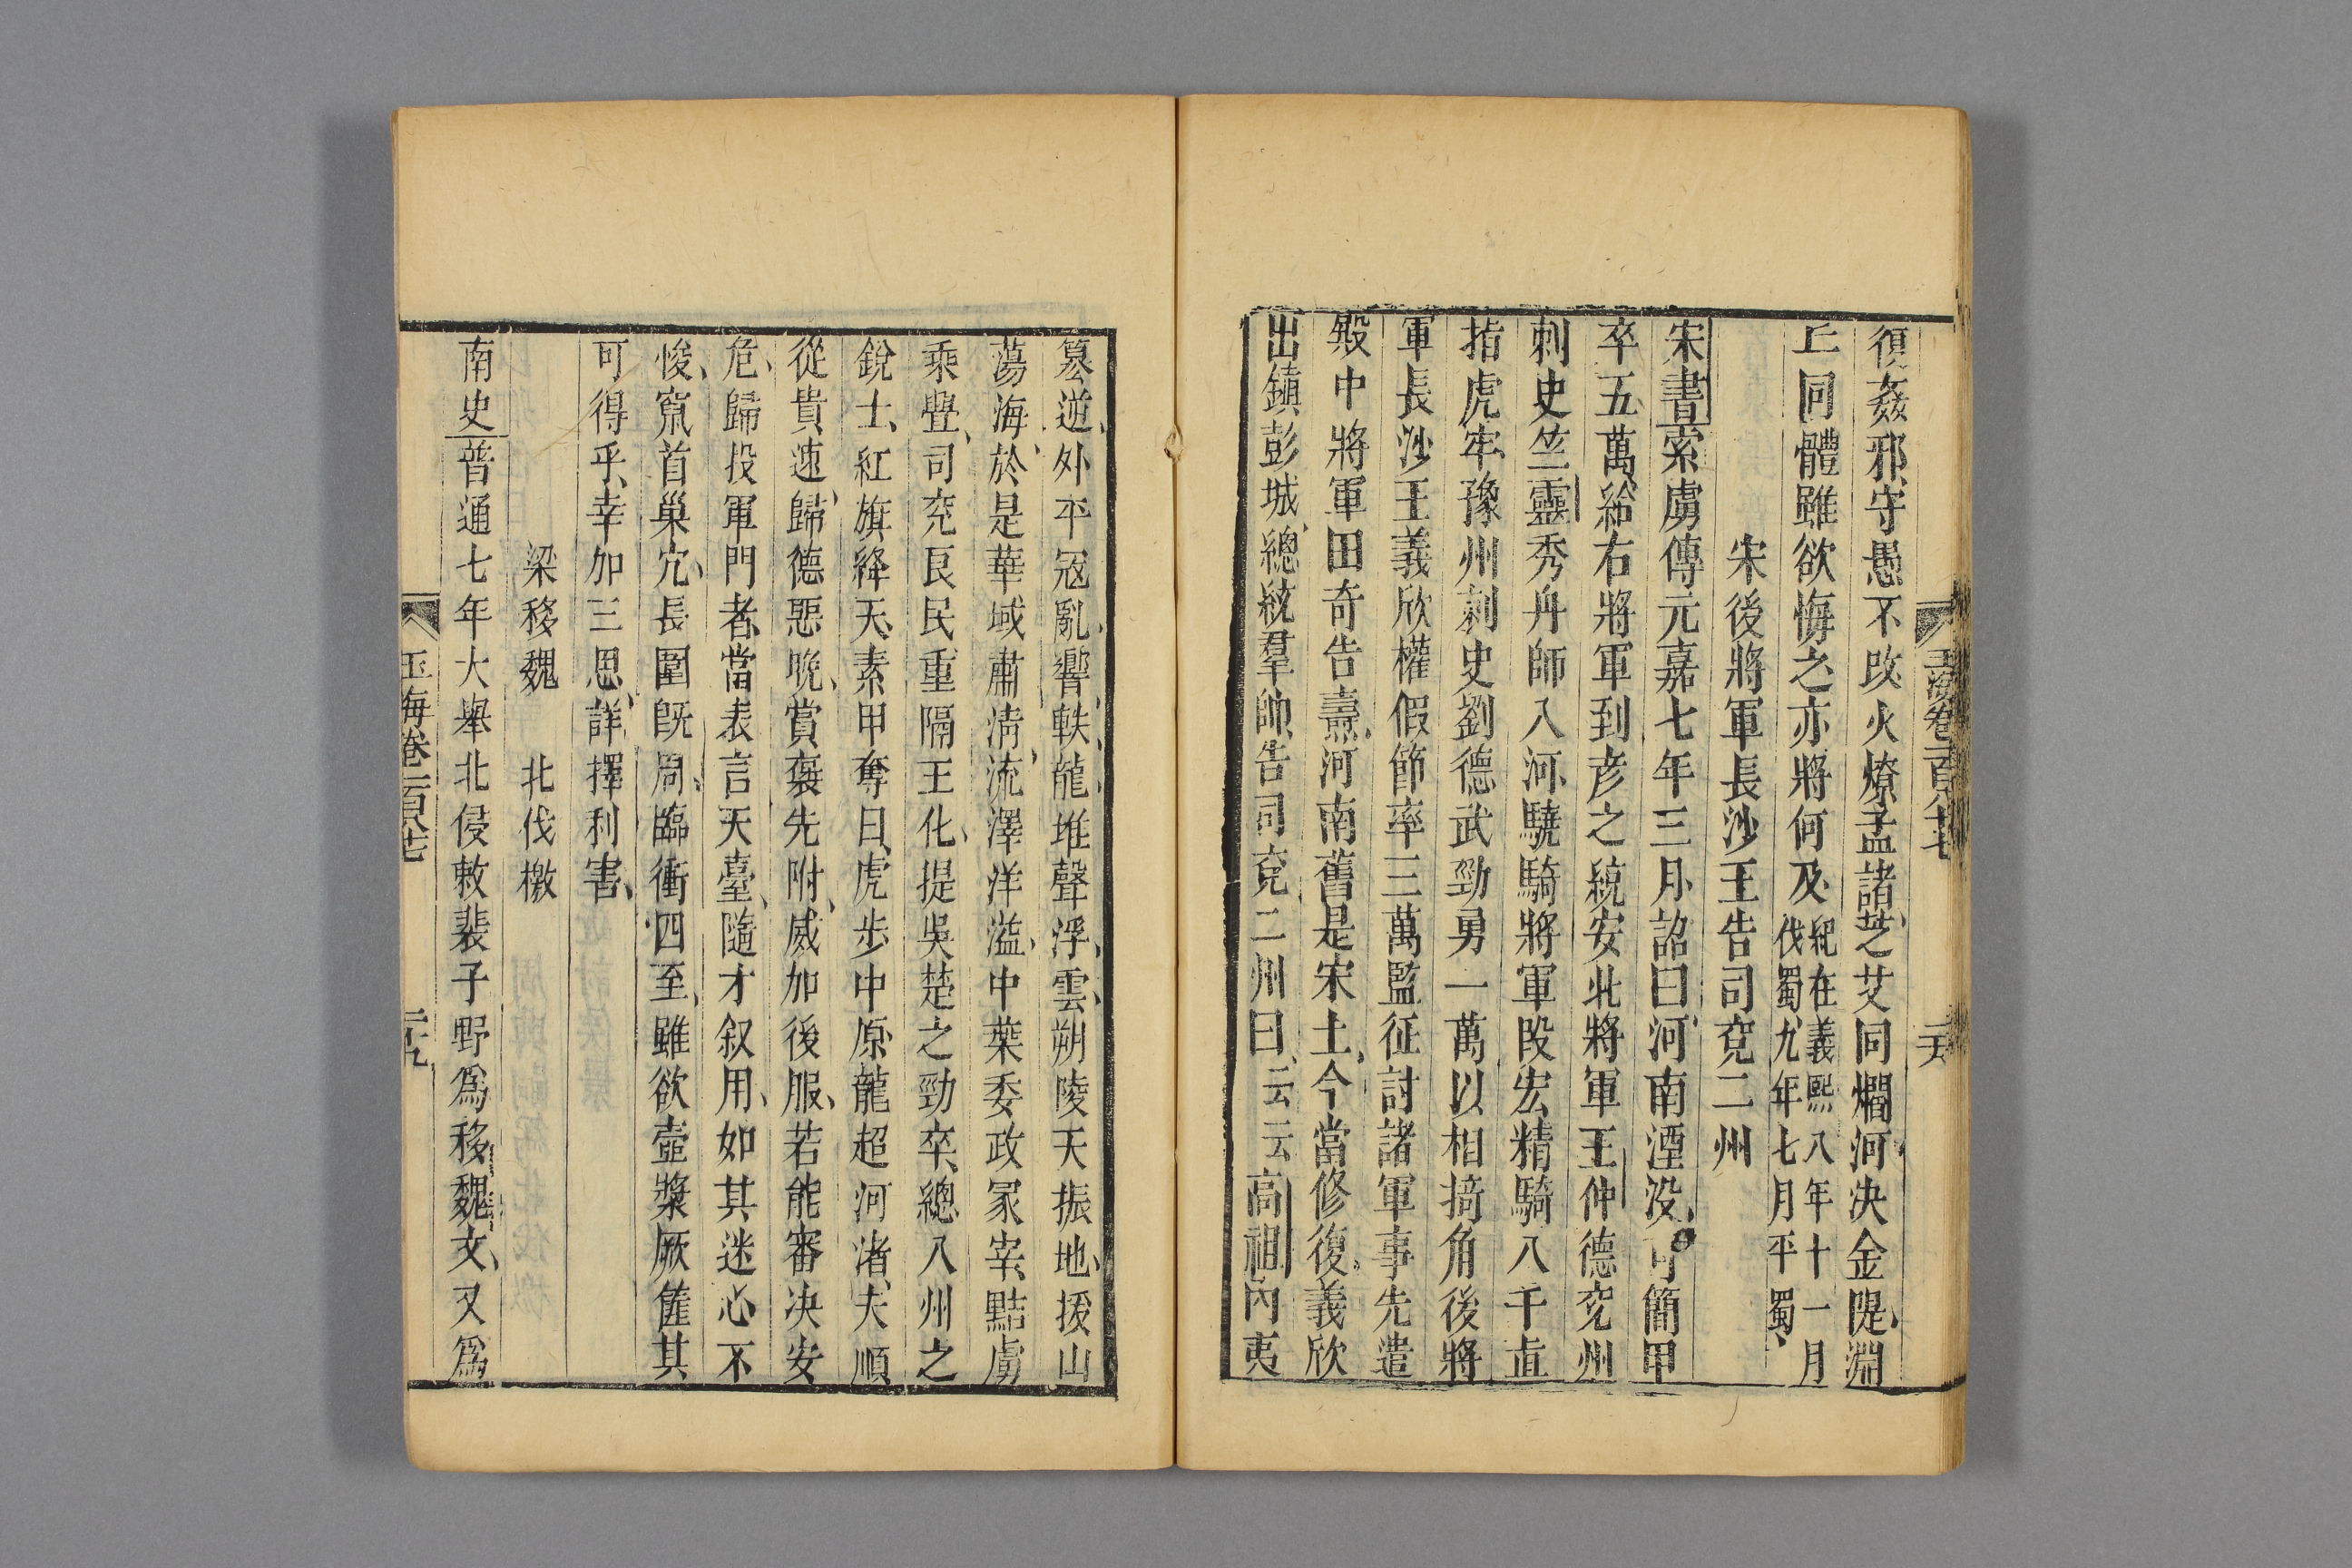 玉海卷一百八十七
二六
復姦邪守愚不改火燎孟諸芝艾同爛河決金隄淵
丘同體雖欲悔之亦將何及紀在義熙八年十一月
伐蜀九年七月平蜀
宋後將軍長沙王告司兗二州
宋書索虜傳元嘉七年三月詔曰河南湮没可簡甲
卒五萬給右將軍到彦之統安北將軍王仲德兗州
刺史竺靈秀舟師入河驍騎將軍段宏精騎八千直
指虎牢豫州刺史劉德武勁勇一萬以相掎角後將
軍長沙王義欣權假節率三萬監征討諸軍事先遣
殿中將軍田奇告燾河南舊是宋土今當修復義欣
出鎮彭城總統羣帥告司兗二州曰云云高祖内夷
篡逆外平冦亂響軼龍堆聲浮雲朔陵天振地援山
蕩海於是華域肅清流澤洋溢中葉委政冢宰黠虜
乘舋司兗良民重隔王化提吳楚之勁卒總八州之
銳士紅旗絳天素甲奪日虎步中原龍超河渚夫順
從貴速歸德惡晚賞襃先附威加後服若能審决安
危歸投軍門者當表言天臺隨才叙用如其迷心不
悛竄首巢穴長圍旣周臨衝四至雖欲壺漿厥篚其
可得乎幸加三思詳擇利害
梁移魏　北伐檄
南史普通七年大舉北侵敕裴子野爲移魏文又爲
玉海卷一百八十七
二十九